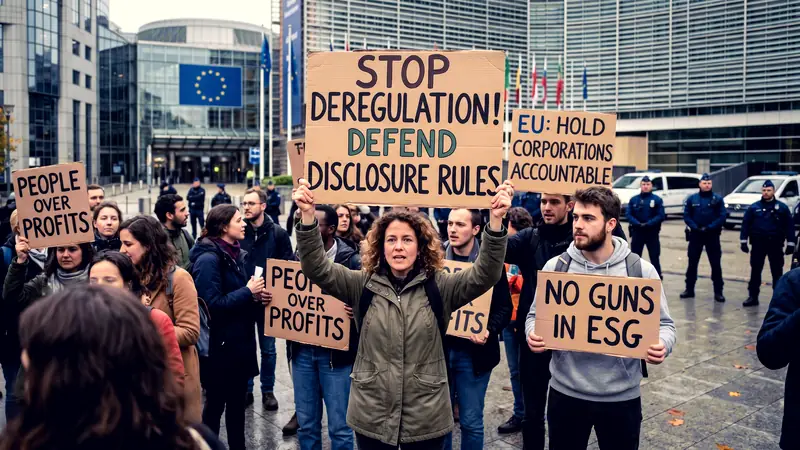 STOP
DEREGULATION!
DEFEND
DISCLOSURE RULES
EU: HOLD
CORPORATIONS
ACCOUNTABLE
PEOPLE
OVER
PROFITS
PEOPLE
OVER
PROFITS
NO GUNS
IN ESG